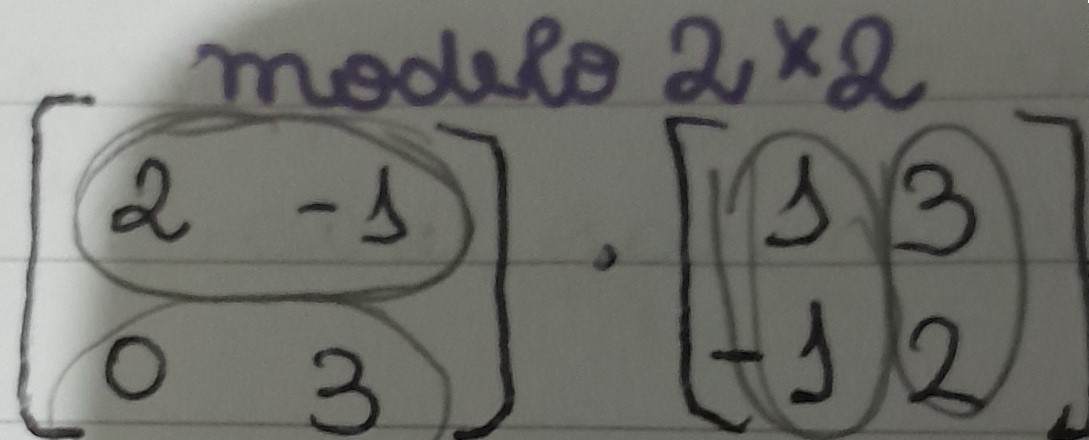 modelo 2×2
[2 -1] · [1 3]
[0 3] [-1 2]